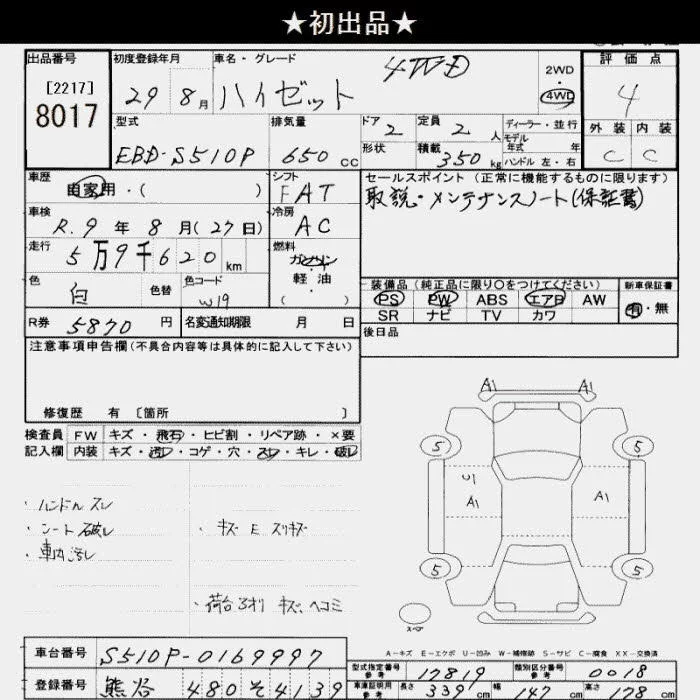 ★初出品★
出品番号 初度登録年月 車名・グレード 評価点
[2217] 8017
29年8月 ハイゼット 4WD
2WD
4WD
4
型式 排気量 ドア 定員 ディーラー・並行 外装 内装
EBD-S510P 650 CC 2 2 人 モデル年式 年
形状 積載 350 kg ハンドル 左・右 C C
車歴 自家用・( ) シフト FAT セールスポイント(正常に機能するものに限ります)
取説・メンテナンスノート(保証書)
車検 R.9年8月(27日) 冷房 AC
走行 5万9千620km 燃料 ガソリン
軽油
( )
色 白 色替 色コード W19
装備品(純正品に限り○をつけてください) 新車保証書
PS PW ABS エアB AW 有・無
SR ナビ TV カワ
R券 5870円 名変通知期限 月 日
後日品
注意事項申告欄(不具合内容等は具体的に記入して下さい)
修復歴 有 [箇所 ]
検査員 FW キズ・飛石・ヒビ割・リペア跡・×要
記入欄 内装 キズ・汚レ・コゲ・穴・スレ・キレ・破レ
・ハンドルスレ
・シート破レ
・車内汚レ
・キズ E スリキズ
・荷台アオリ キズ、ヘコミ
A1 A1
5 5
A1 A1
5 5
スペア
A-キズ E-エクボ U-凹み W-補修跡 S-サビ C-腐食 XX-交換済
車台番号 S510P-0169997
型式指定番号 参考 17819 類別区分番号 参考 0018
登録番号 熊谷 480 そ 4139
車庫証明用 参考 長さ 339cm 幅 147cm 高さ 178cm